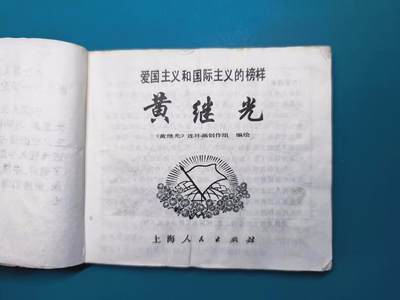 爱国主义和国际主义的榜样
黄继光
《黄继光》连环画创作组 编绘
上海人民出版社